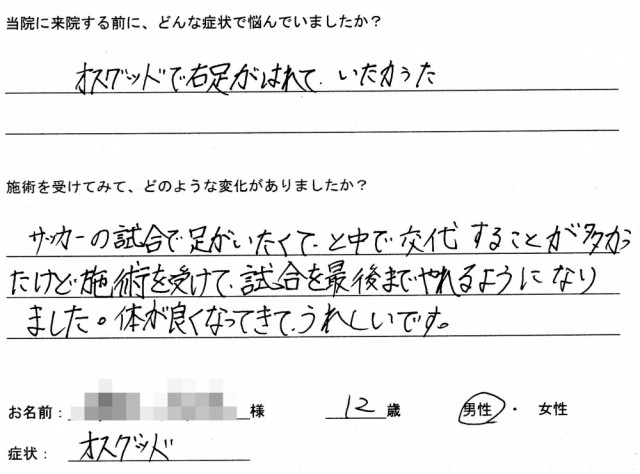 当院に来院する前に、どんな症状で悩んでいましたか？
オスグッドで右足がはれて、いたかった
施術を受けてみて、どのような変化がありましたか？
サッカーの試合で足がいたくて、と中で交代することが多かっ
たけど、施術を受けて、試合を最後までやれるようになり
ました。体が良くなってきて、うれしいです。
お名前： 様 12 歳 男性 ・ 女性
症状： オスグッド